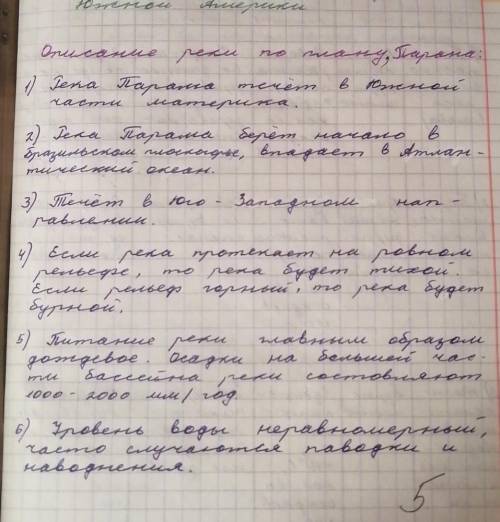 Южной Америки
Описание реки по плану, Парана:
1) Река Парана течёт в Южной
части материка.
2) Река Парана берёт начало в
бразильском плоскогье, впадает в Атлан-
тический океан.
3) Течёт в Юго-Западном нап-
равлении.
4) Если река протекает на ровном
рельефе, то река будет тихой.
Если рельеф горный, то река будет
бурной.
5) Питание реки главным образом
дождевое. Осадки на большей час-
ти бассейна реки составляют
1000-2000 мм/год
6) Уровень воды неравномерный,
часто случаются паводки и
наводнения.
5